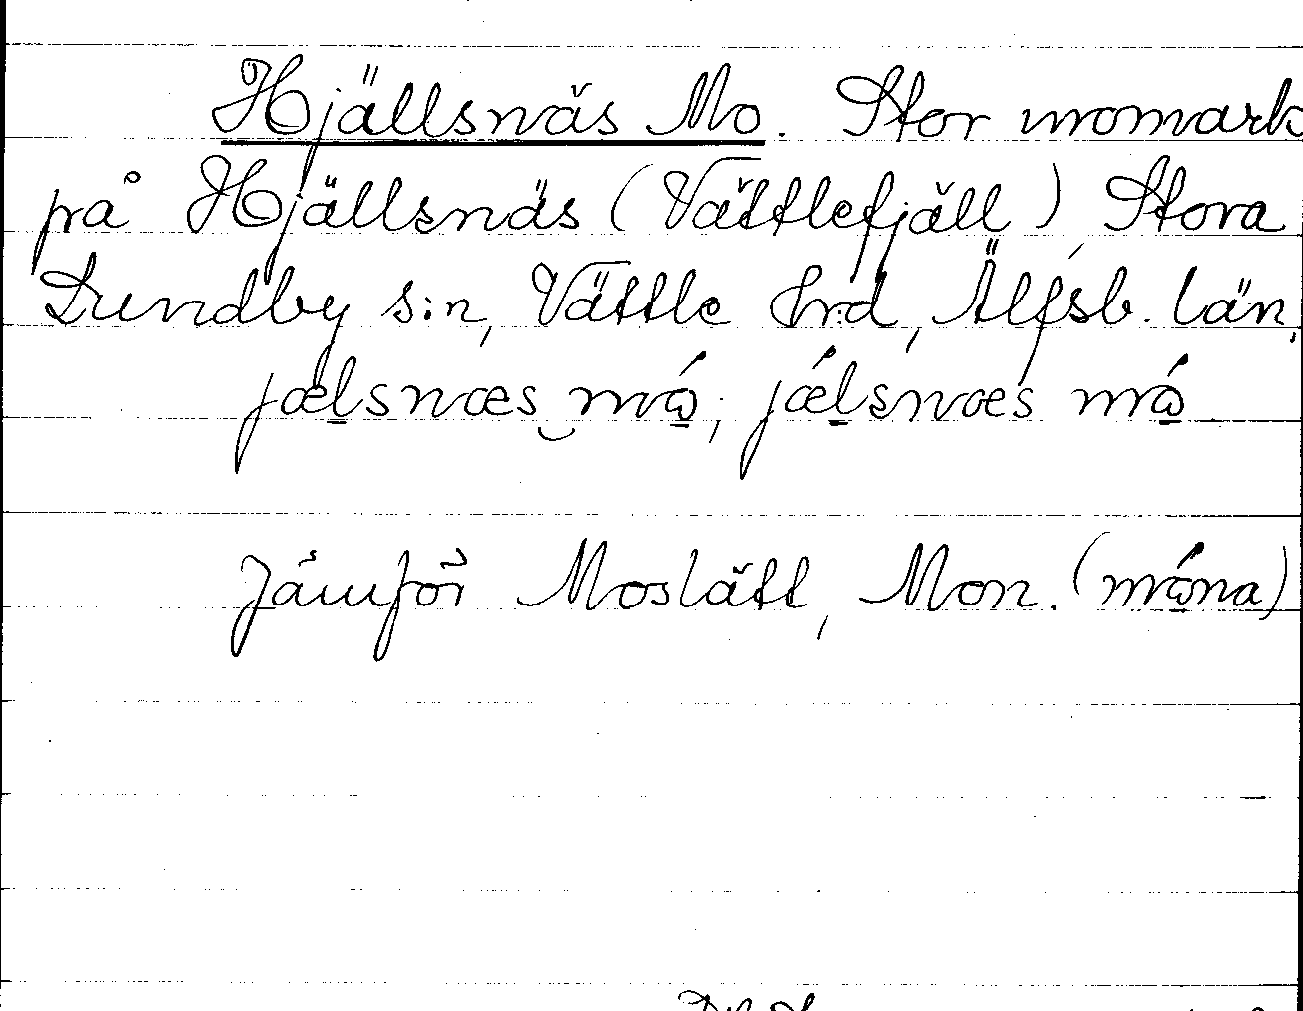 Hjällsnäs Mo. Stor momark
på Hjällsnäs (Vättlefjäll), Stora
Lundby s:n, Vättle hrd, Älfsb. län,
jælsnæs mó, jǽlsnæs mó
Jämför Moslätt, Mon. (móna)